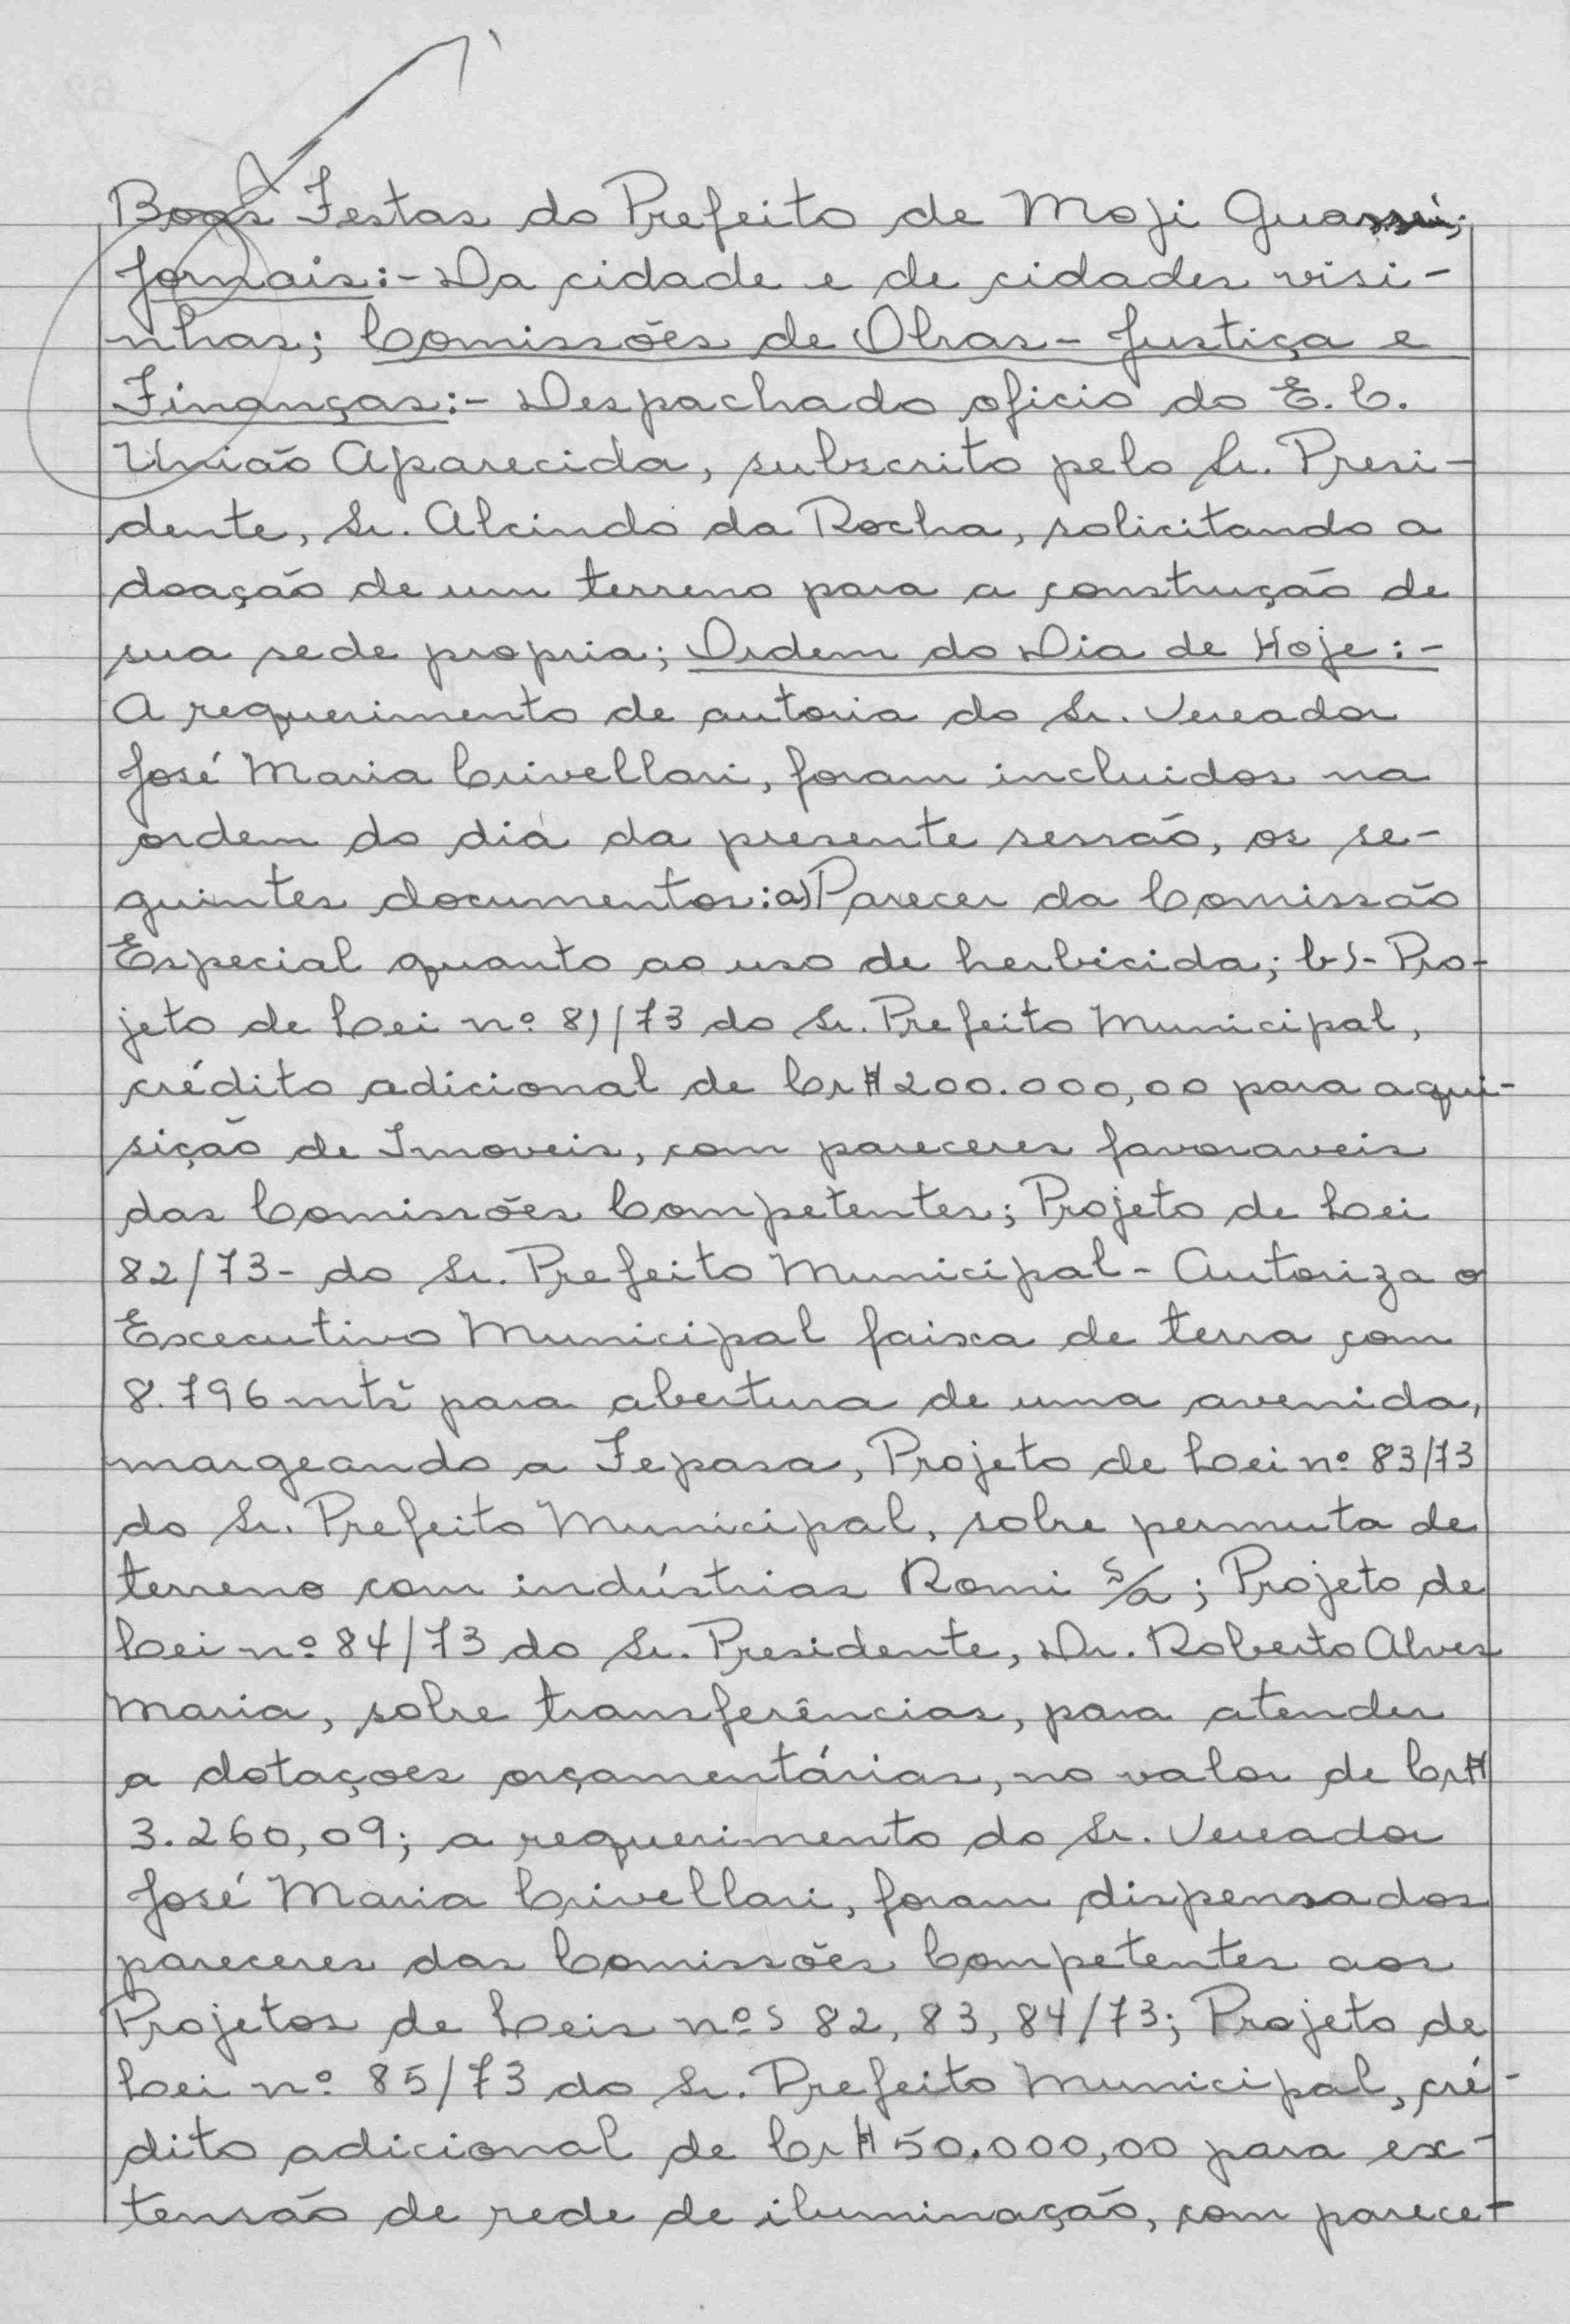 Boas Festas do Prefeito de Moji Guassú;
Jornais:- Da cidade e de cidades visi-
nhas; Comissões de Obras - Justiça e
Finanças:- Despachado oficio do E. C.
União Aparecida, subscrito pelo Sr. Presi-
dente, Sr. Alcindo da Rocha, solicitando a
doação de um terreno para a construção de
sua sede propria; Ordem do Dia de Hoje:-
A requerimento de autoria do Sr. Vereador
José Maria Crivellari, foram incluidos na
ordem do dia da presente sessão, os se-
guintes documentos: a) Parecer da Comissão
Especial quanto ao uso de herbicida; b)- Pro-
jeto de Lei nº 81/73 do Sr. Prefeito Municipal,
crédito adicional de Cr$ 200.000,00 para aqui-
sição de Imoveis, com pareceres favoraveis
das Comissões Competentes; Projeto de Lei
82/73- do Sr. Prefeito Municipal - Autoriza o
Executivo Municipal faixa de terra com
8.796 mts² para abertura de uma avenida,
margeando a Fepasa, Projeto de Lei nº 83/73
do Sr. Prefeito Municipal, sobre permuta de
terreno com indústrias Romi S/A; Projeto de
Lei nº 84/73 do Sr. Presidente, Dr. Roberto Alves
Maria, sobre transferências, para atender
a dotaçoes orçamentárias, no valor de Cr$
3.260,09; a requerimento do Sr. Vereador
José Maria Crivellari, foram dispensados
pareceres das Comissões Competentes aos
Projetos de Leis nºs 82, 83, 84/73; Projeto de
Lei nº 85/73 do Sr. Prefeito Municipal, cré-
dito adicional de Cr$ 50.000,00 para ex-
tensão de rede de iluminação, com parece-